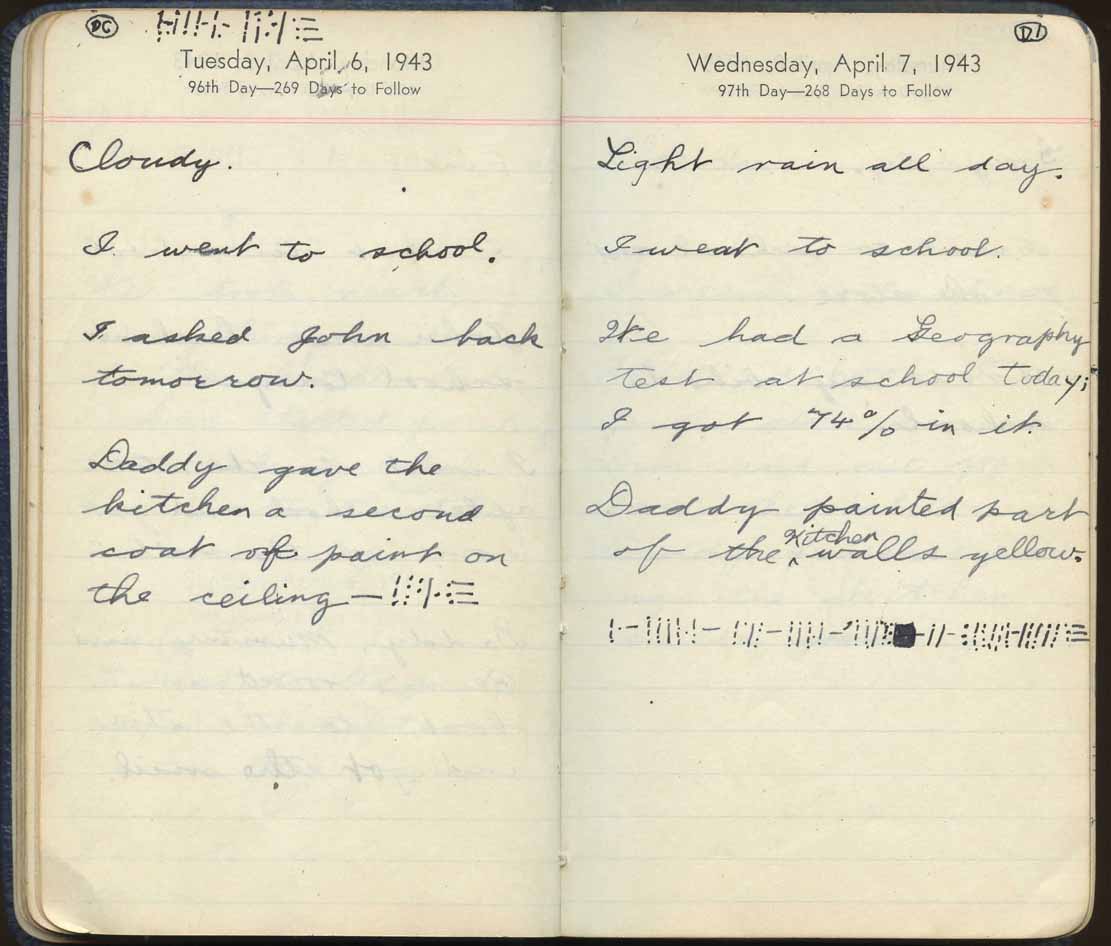 DC
Tuesday, April 6, 1943
96th Day—269 Days to Follow
Cloudy.
I went to school.
I asked John back
tomorrow.
Daddy gave the
kitchen a second
coat of paint on
the ceiling—
Wednesday, April 7, 1943
97th Day—268 Days to Follow
Light rain all day.
I went to school.
We had a Geography
test at school today;
I got 74% in it.
Daddy painted part
of the kitchen walls yellow.